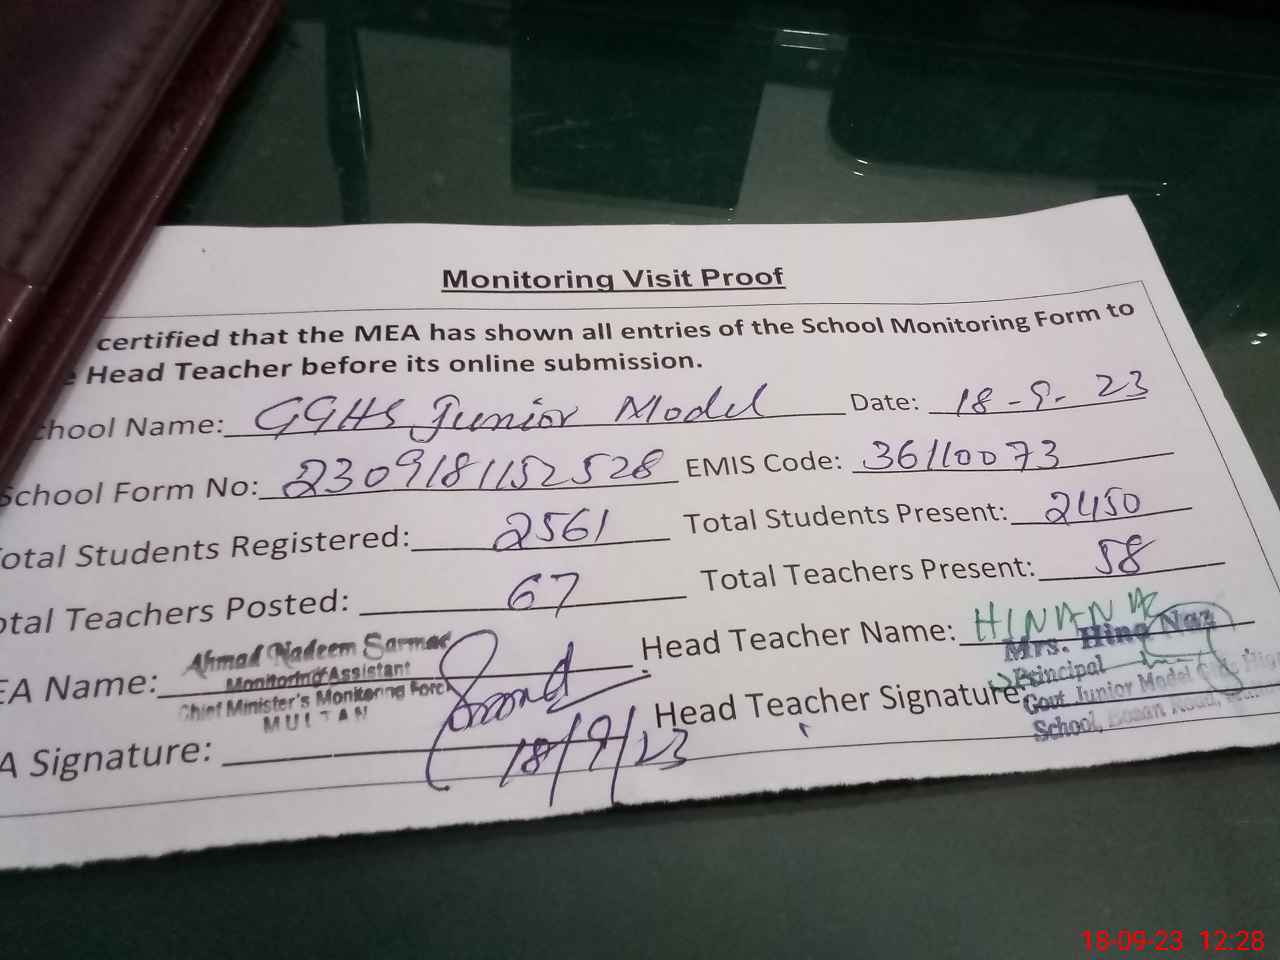 Monitoring Visit Proof
certified that the MEA has shown all entries of the School Monitoring Form to
Head Teacher before its online submission.
chool Name: GGHS Junior Model Date: 18-9-23
School Form No: 2309181152528 EMIS Code: 36110073
otal Students Registered: 2561 Total Students Present: 2450
otal Teachers Posted: 67 Total Teachers Present: 58
EA Name: Head Teacher Name: HINA NAZ
Ahmad Nadeem Sarmad
Monitoring Assistant
Chief Minister's Monitoring Force
MULTAN
Mrs. Hina Naz
Principal
Govt Junior Model High
School, Bosan Road,
Head Teacher Signature:
A Signature: 18/9/23
18-09-23 12:28